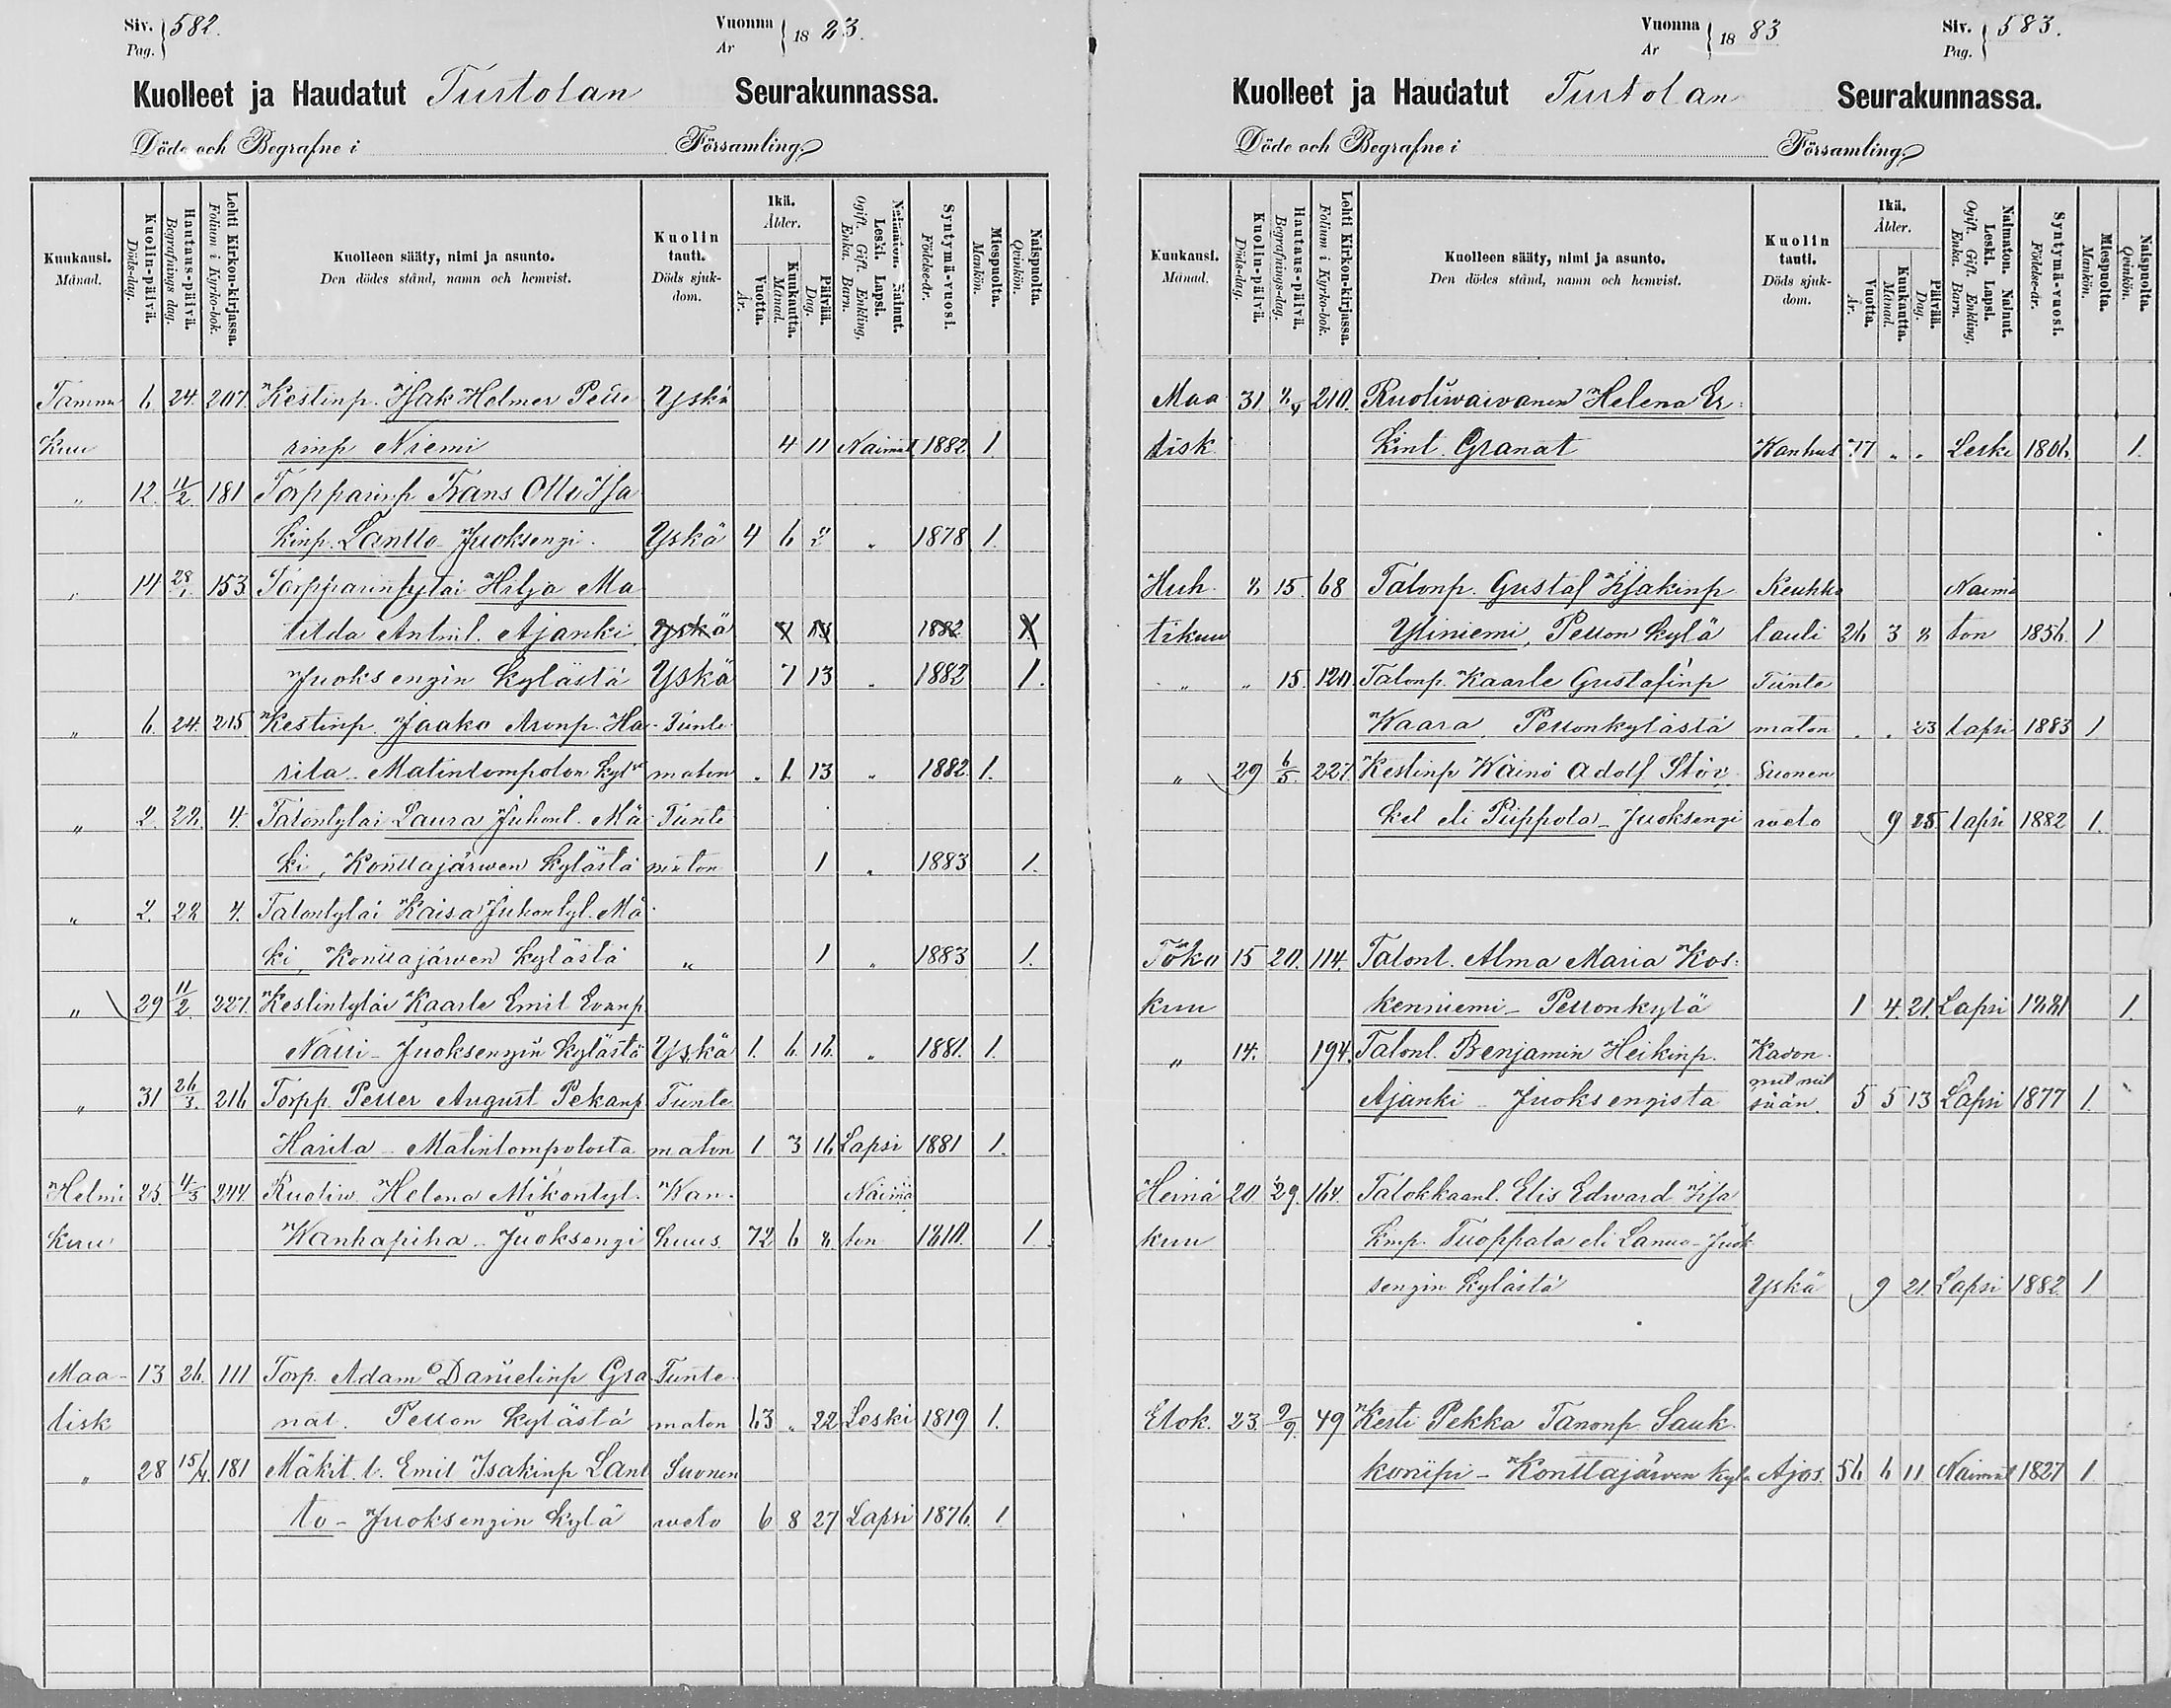 Siv. Pag. 582.
Vuonna År 1883.
Kuolleet ja Haudatut Turtolan Seurakunnassa.
Döde och Begrafne i Församling.
Kuukausi. Månad.
Kuolin-päivä. Döds-dag.
Hautaus-päivä. Begrafnings dag.
Lehti Kirkon-kirjassa. Folium i Kyrko-bok.
Kuolleen sääty, nimi ja asunto. Den dödes stånd, namn och hemvist.
Kuolin tauti. Döds sjuk-dom.
Ikä. Ålder.
Vuotta. År.
Kuukautta. Månad.
Päivää. Dag.
Naimaton. Nainut. Leski. Lapsi. Ogift. Gift. Enkling, Enka. Barn.
Syntymä-vuosi. Födelse-år.
Miespuolta. Mankön.
Naispuolta. Qvinkön.
Tammi 6. 24. 207. Kestinp. Isak Helmer Pette Yskä
kuu rinp Niemi 4 11 Naimat 1882 1.
„ 12. 11/2. 181 Torpparinp Frans Otto Isa
kinp. Lantto Juoksengi. Yskä 4 6 2 „ 1878 1.
„ 14 28/1. 153. Torpparintytär Hilja Ma
tilda Antinl. Ajanki. Yskä 7 13 1882 1
Juoksengin kylästä Yskä 7 13 „ 1882 1.
„ 6. 24. 215 Kestinp. Jaako Aronp. Ha- Tunte
rila. Matintompolon kyl. maton „ 1. 13 „ 1882. 1.
„ 2. 22. 4. Talontytär Laura Juhonl. Mä- Tunte
ki, Konttajärwen kylästä maton 1 „ 1883 1.
„ 2. 22 4. Talontytär Kaisa Juhontyt. Mä
ki, Konttajärwen kylästä „ 1 „ 1883 1.
„ 29 11/2. 227. Kestintytär Kaarle Emil Evanp
Naiti - Juoksengin kylästä Yskä 1. 6. 16. „ 1881. 1.
„ 31 26/3. 216 Torpp. Petter August Pekanp Tunte
Harila - Matintompolosta maton 1 3 16 Lapsi 1881 1.
Helmi 25. 4/3 244. Ruotiw. Helena Mikontyt. Wan- Naima
kuu Wanhapiha - Juoksengi huus. 72 6 8. ton 1810. 1.
Maa- 13 26. 111 Torp. Adam Danielinp Gra Tunte
lisk nat. Pellon kylästä maton 63 „ 22 Leski 1819 1.
„ 28 15/4. 181 Mäkit. l. Emil Isakinp Lant Suonen
to - Juoksengin kylä weto 6 8 27 Lapsi 1876. 1
Vuonna År 1883
Siv. Pag. 583.
Kuolleet ja Haudatut Turtolan Seurakunnassa.
Döde och Begrafne i Församling.
Kuukausi. Månad.
Kuolin-päivä. Döds-dag.
Hautaus-päivä. Begrafnings-dag.
Lehti Kirkon-kirjassa. Folium i Kyrko-bok.
Kuolleen sääty, nimi ja asunto. Den dödes stånd, namn och hemvist.
Kuolin tauti. Döds sjuk-dom.
Ikä. Ålder.
Vuotta. År.
Kuukautta. Månad.
Päivää. Dag.
Naimaton. Nainut. Leski. Lapsi. Ogift. Gift. Enkling, Enka. Barn.
Syntymä-vuosi. Födelse-år.
Miespuolta. Mankön.
Naispuolta. Qvinkön.
Maa 31. 8/4 210. Ruotiwaivanen Helena Er.
lisk. kint. Granat Wanhus 77 „ „ Leski 1806. 1.
Huh. 8 15. 68 Talonp. Gustaf Isakinp Keuhko Naima
tikuu Yliniemi, Pellon kylä tauti 26 3 8 ton 1856. 1
„ „ 15. 120. Talonp. Kaarle Gustafinp Tunte
Waara. Pellonkylästä maton „ „ 23 lapsi 1883 1
„ 29 6/5. 227. Kestinp Wäinö Adolf Stöc Suonen
kel eli Piippola - Juoksengi weto 9 25. lapsi 1882 1.
Toko 15 20. 114. Talonl. Alma Maria Kos:
kuu kenniemi - Pellonkylä 1 4. 21. Lapsi 1881 1.
„ 14. 194. Talonl. Benjamin Heikinp. Kadon
Ajanki - Juoksengista 5 5 13 Lapsi 1877 1.
Heinä 20. 29. 164. Talokkaanl. Elis Edward Isa
kuu kinp. Tuoppala eli Lantto - Juok
sengin kylästä Yskä 9 21. Lapsi 1882 1
Elok. 23. 9/9. 49 Kesti Pekka Tanonp. Sauk
koriipi - Konttajärwen kylä Ajos. 56 6 11 Naimat 1827 1